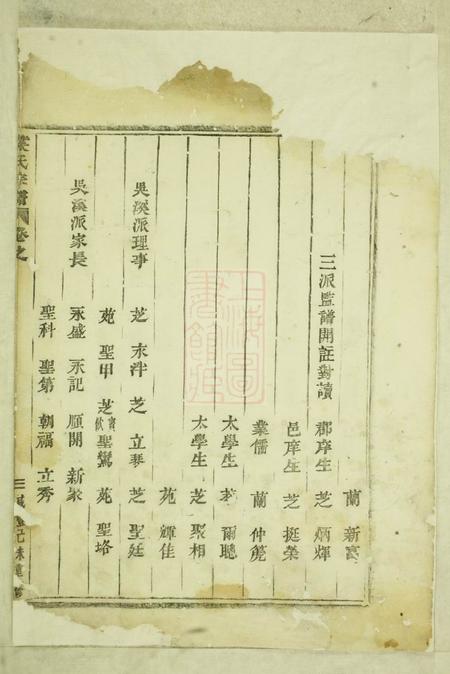 蘭 新
三派監譜開註對讀 郡庠生 芝 炳輝
邑庠生 芝 挺榮
業儒 蘭 仲篪
太學生 爾聰
太學生 芝 聚相
苑 輝佳
吳溪派理事 芝 永泮 芝 立琴 芝 聖廷
苑 聖甲 芝 聖鸞 苑 聖珞
吳溪派家長 永盛 永記 順開 新
聖科 聖第 朝福 立秀
氏 譜 卷之
上海圖書館藏